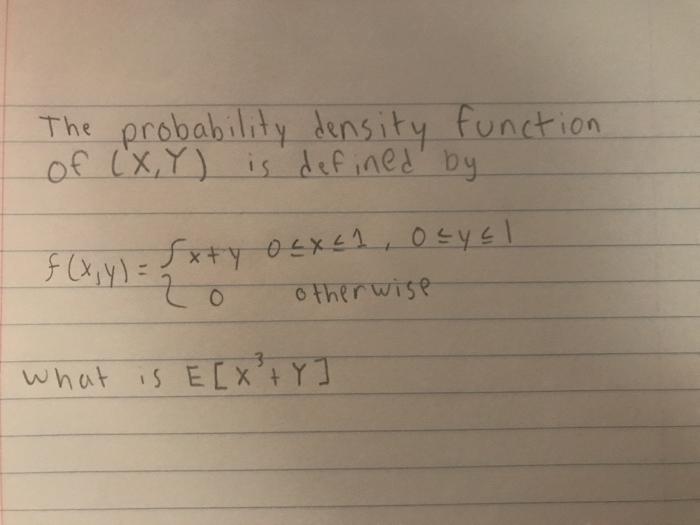 The probability density function
of (X,Y) is defined by
f(x,y) = { x+y 0≤x≤1, 0≤y≤1
0 otherwise
What is E[X³+Y]